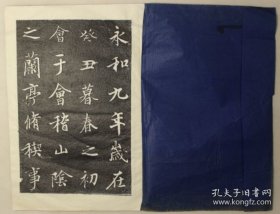 永和九年歲在
癸丑暮春之初
會于會稽山陰
之蘭亭脩稧事
孔夫子旧书网